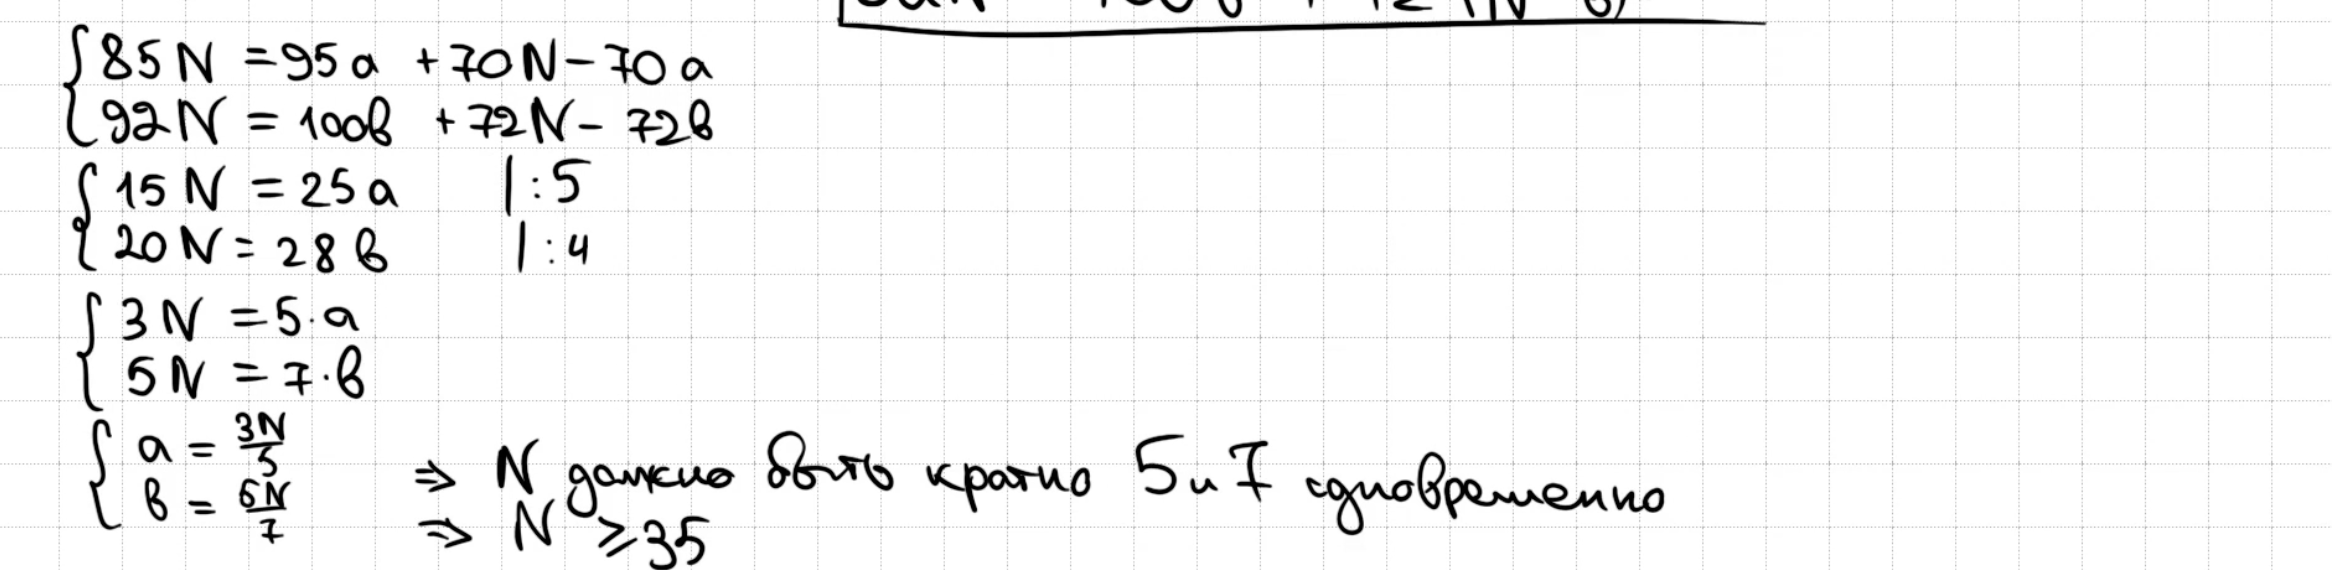 85N = 95a + 70N - 70a
92N = 100в + 72N - 72в
15N = 25a |:5
20N = 28в |:4
3N = 5·a
5N = 7·в
a = 3N/5 ⇒ N должно быть кратно 5 и 7 одновременно
в = 5N/7 ⇒ N ≥ 35